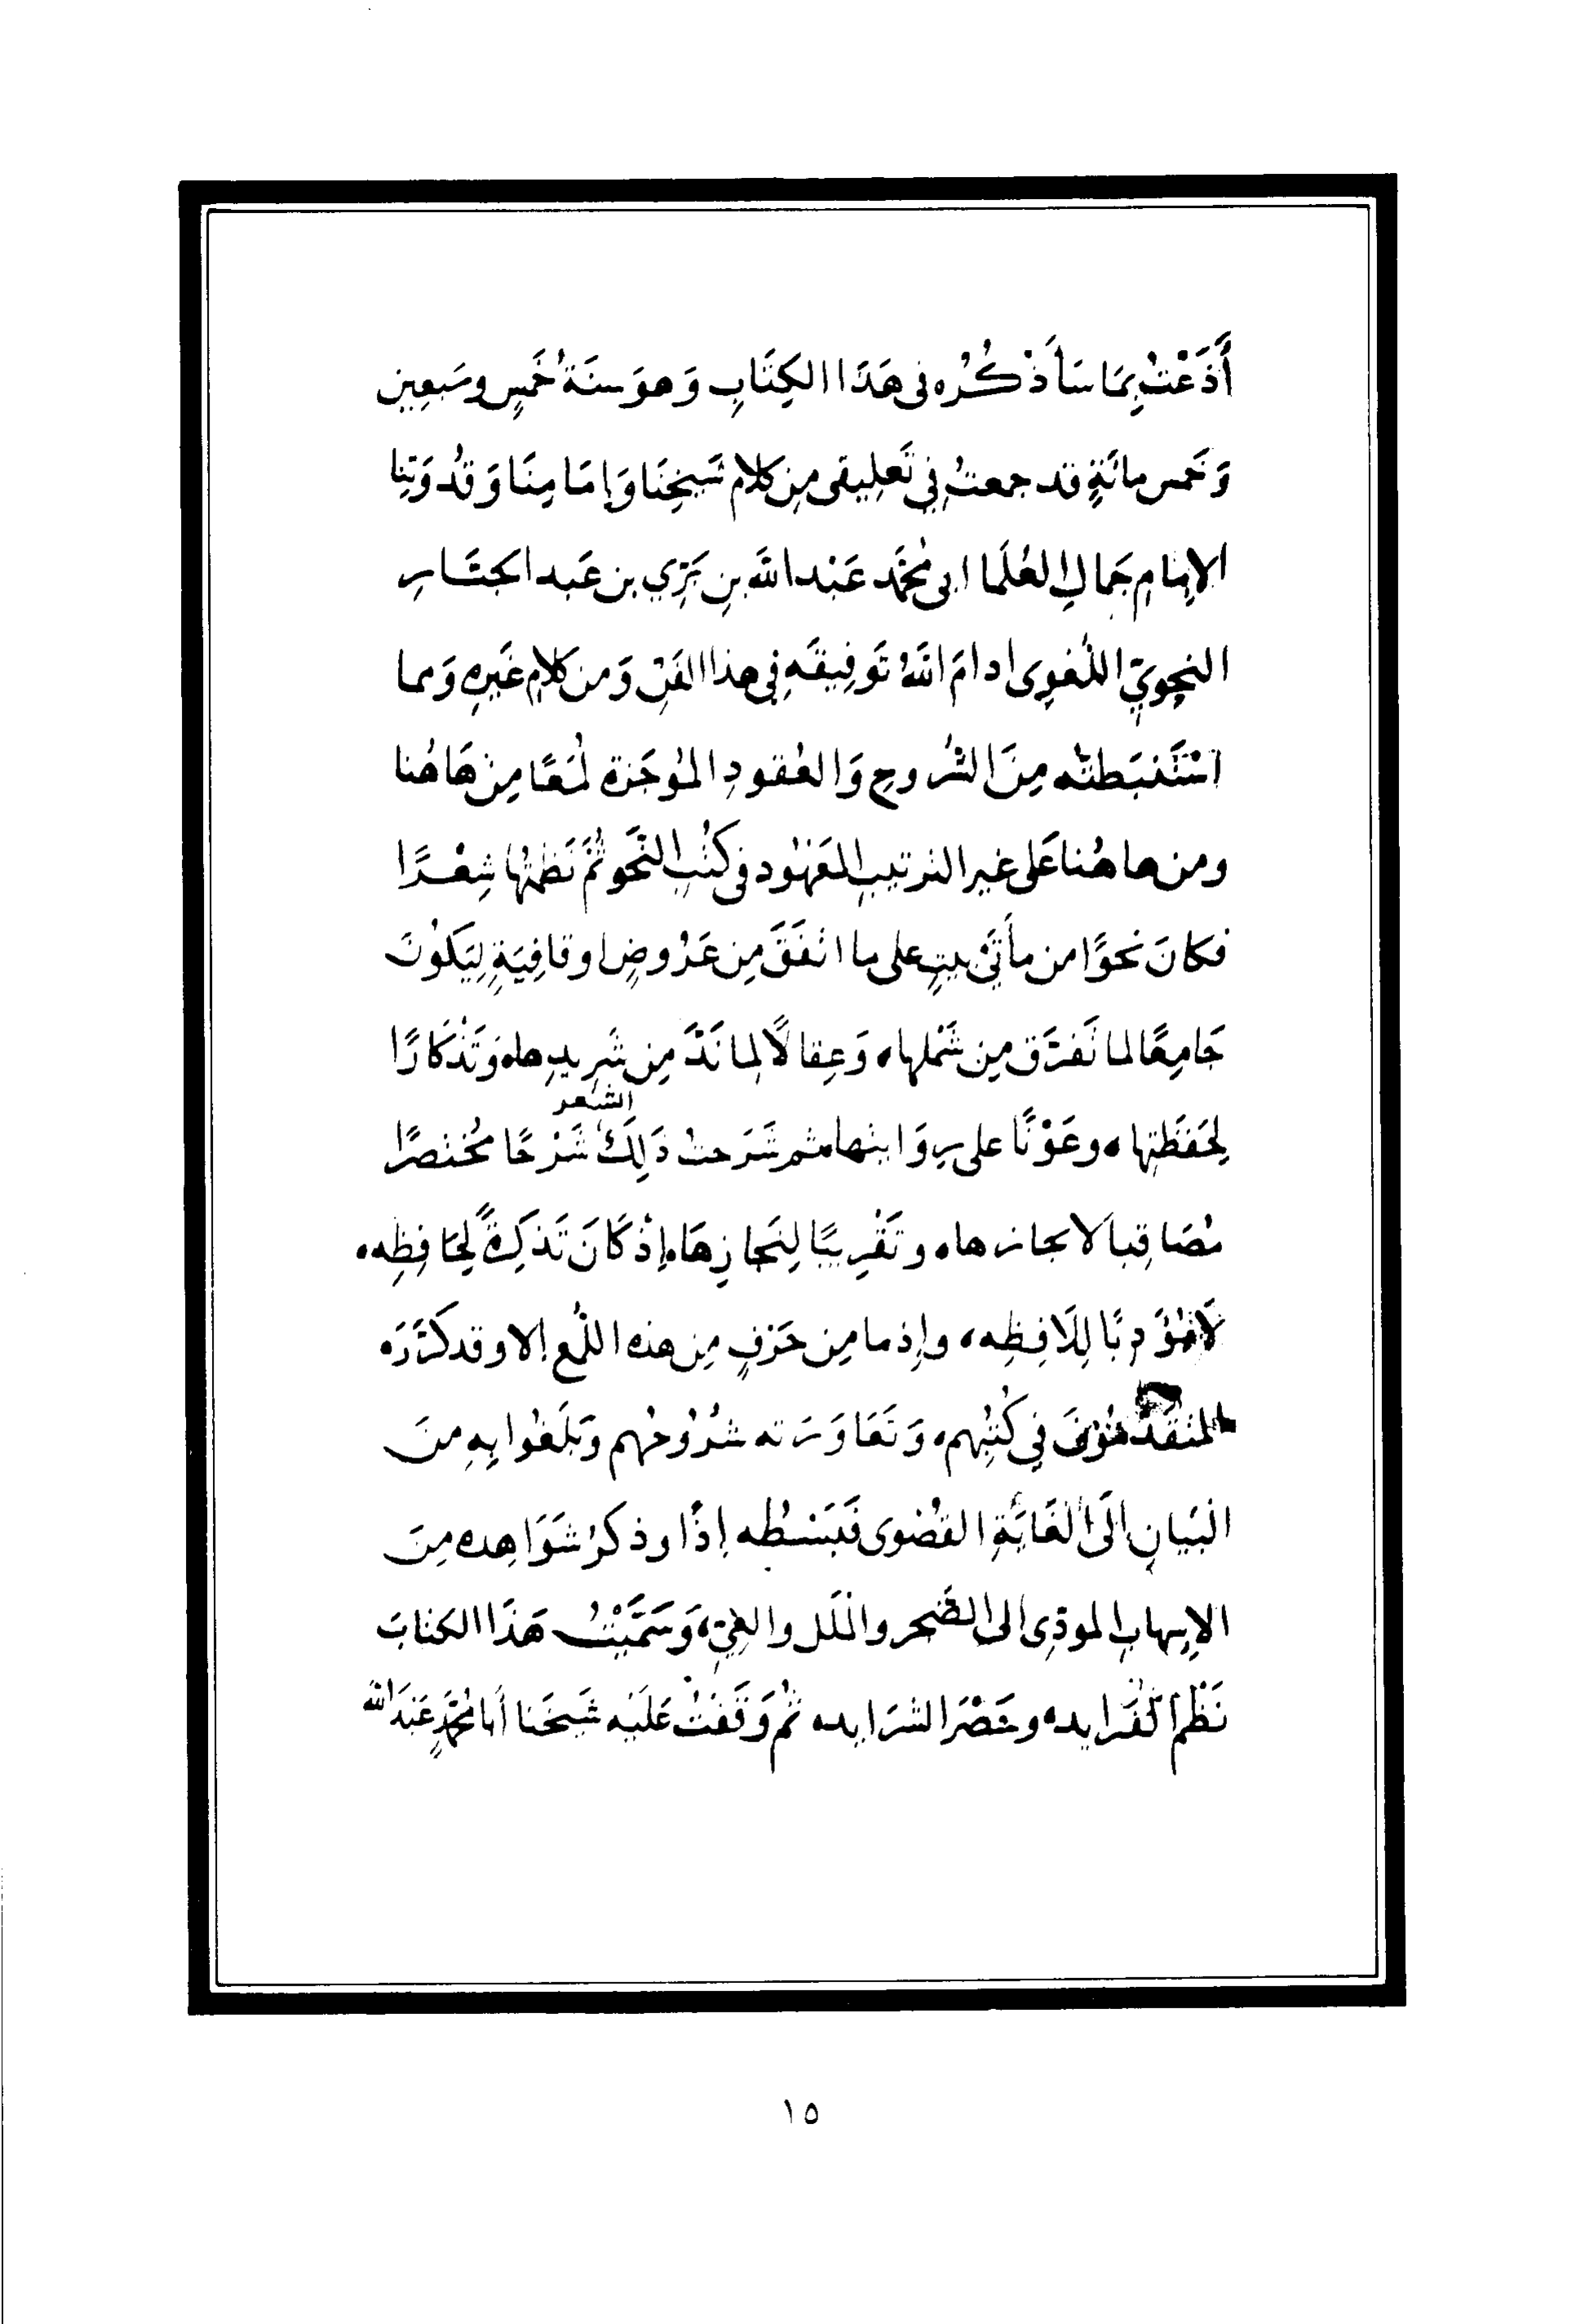 أَذَعْتُ بِمَا سَأَذْكُرُه فى هَذَا الكِتَابِ وَهوَ سنَةُ خَمسٍ وسَبعِين
وَخَمس مائَةٍ قد جمعتُ فِي تَعلِيقى مِن كلام شَيخِنَا وَإمَامِنَا وَقُدْوَتِنا
الإمامِ جَمالِ العُلَما ابى مُحَمَّد عَبْدِ اللَّه بنِ بَرِّي بن عَبد الجبَّار
النحوِيّ اللُغوِى ادامَ اللَّهُ تَوفِيقَهِ فِى هذا الفَنِّ وَمن كلامِ غَيرِهِ وَمما
اسْتَنبَطتُه مِنَ الشُروحِ وَالعُقودِ المُوجَزة لُمَعًا مِن هَاهُنا
ومن هاهُنا عَلى غير الترتيبِ المَعهُود فى كتُبِ النَّحوِ ثُمَّ نَظمتُهَا شِعْرًا
فكانَ نحوًا من مأتَىْ بيتٍ على ما اتفَقَ مِن عَرُوضٍ او قافِيَةٍ لِيَكُونَ
جَامِعًا لما تَفرَّق مِن شَملها، وَعِقالًا لِما نَدَّ مِن شَرِيدِها، وَتَذْكارًا
لِحَفَظَتِها، وعَوْنًا على روَايتها، ثم شَرَحتُ ذَلِكَ الشعر شَرْحًا مُختصرًا
مُصَاقِبا لايجازها، وتَقْرِيبًا لِنَجازِهَا، إذْ كَانَ تَذكِرةً لِحَافِظِه،
لَا مُؤَدِّبًا لِلَافِظِه، وإذ ما مِن حَرْفٍ مِن هذه اللُمع إلا وقد كَرَّرَه
المتقَدّمُونَ فِي كُتُبِهم، وَتَعَاوَرَته شُرُوحُهم وَبَلَغُوا بِهِ منَ
البَيَانِ الَى الغَايَةِ القُصْوى فَبَسْطُه إذًا وذكرُ شَوَاهِده مِنَ
الإسهابِ الموذِى الى الضَّجر والمَلل والعِيّ، وَسَمَّيْتُ هَذَا الكتابَ
نَظْمَ الفَرايد، وحَصْرَ الشرَايد، ثُمَّ وَقَفتُ عَلَيْه شَيخَنا أبا مُحَمَّدٍ عَبْدَ اللَّه
١٥